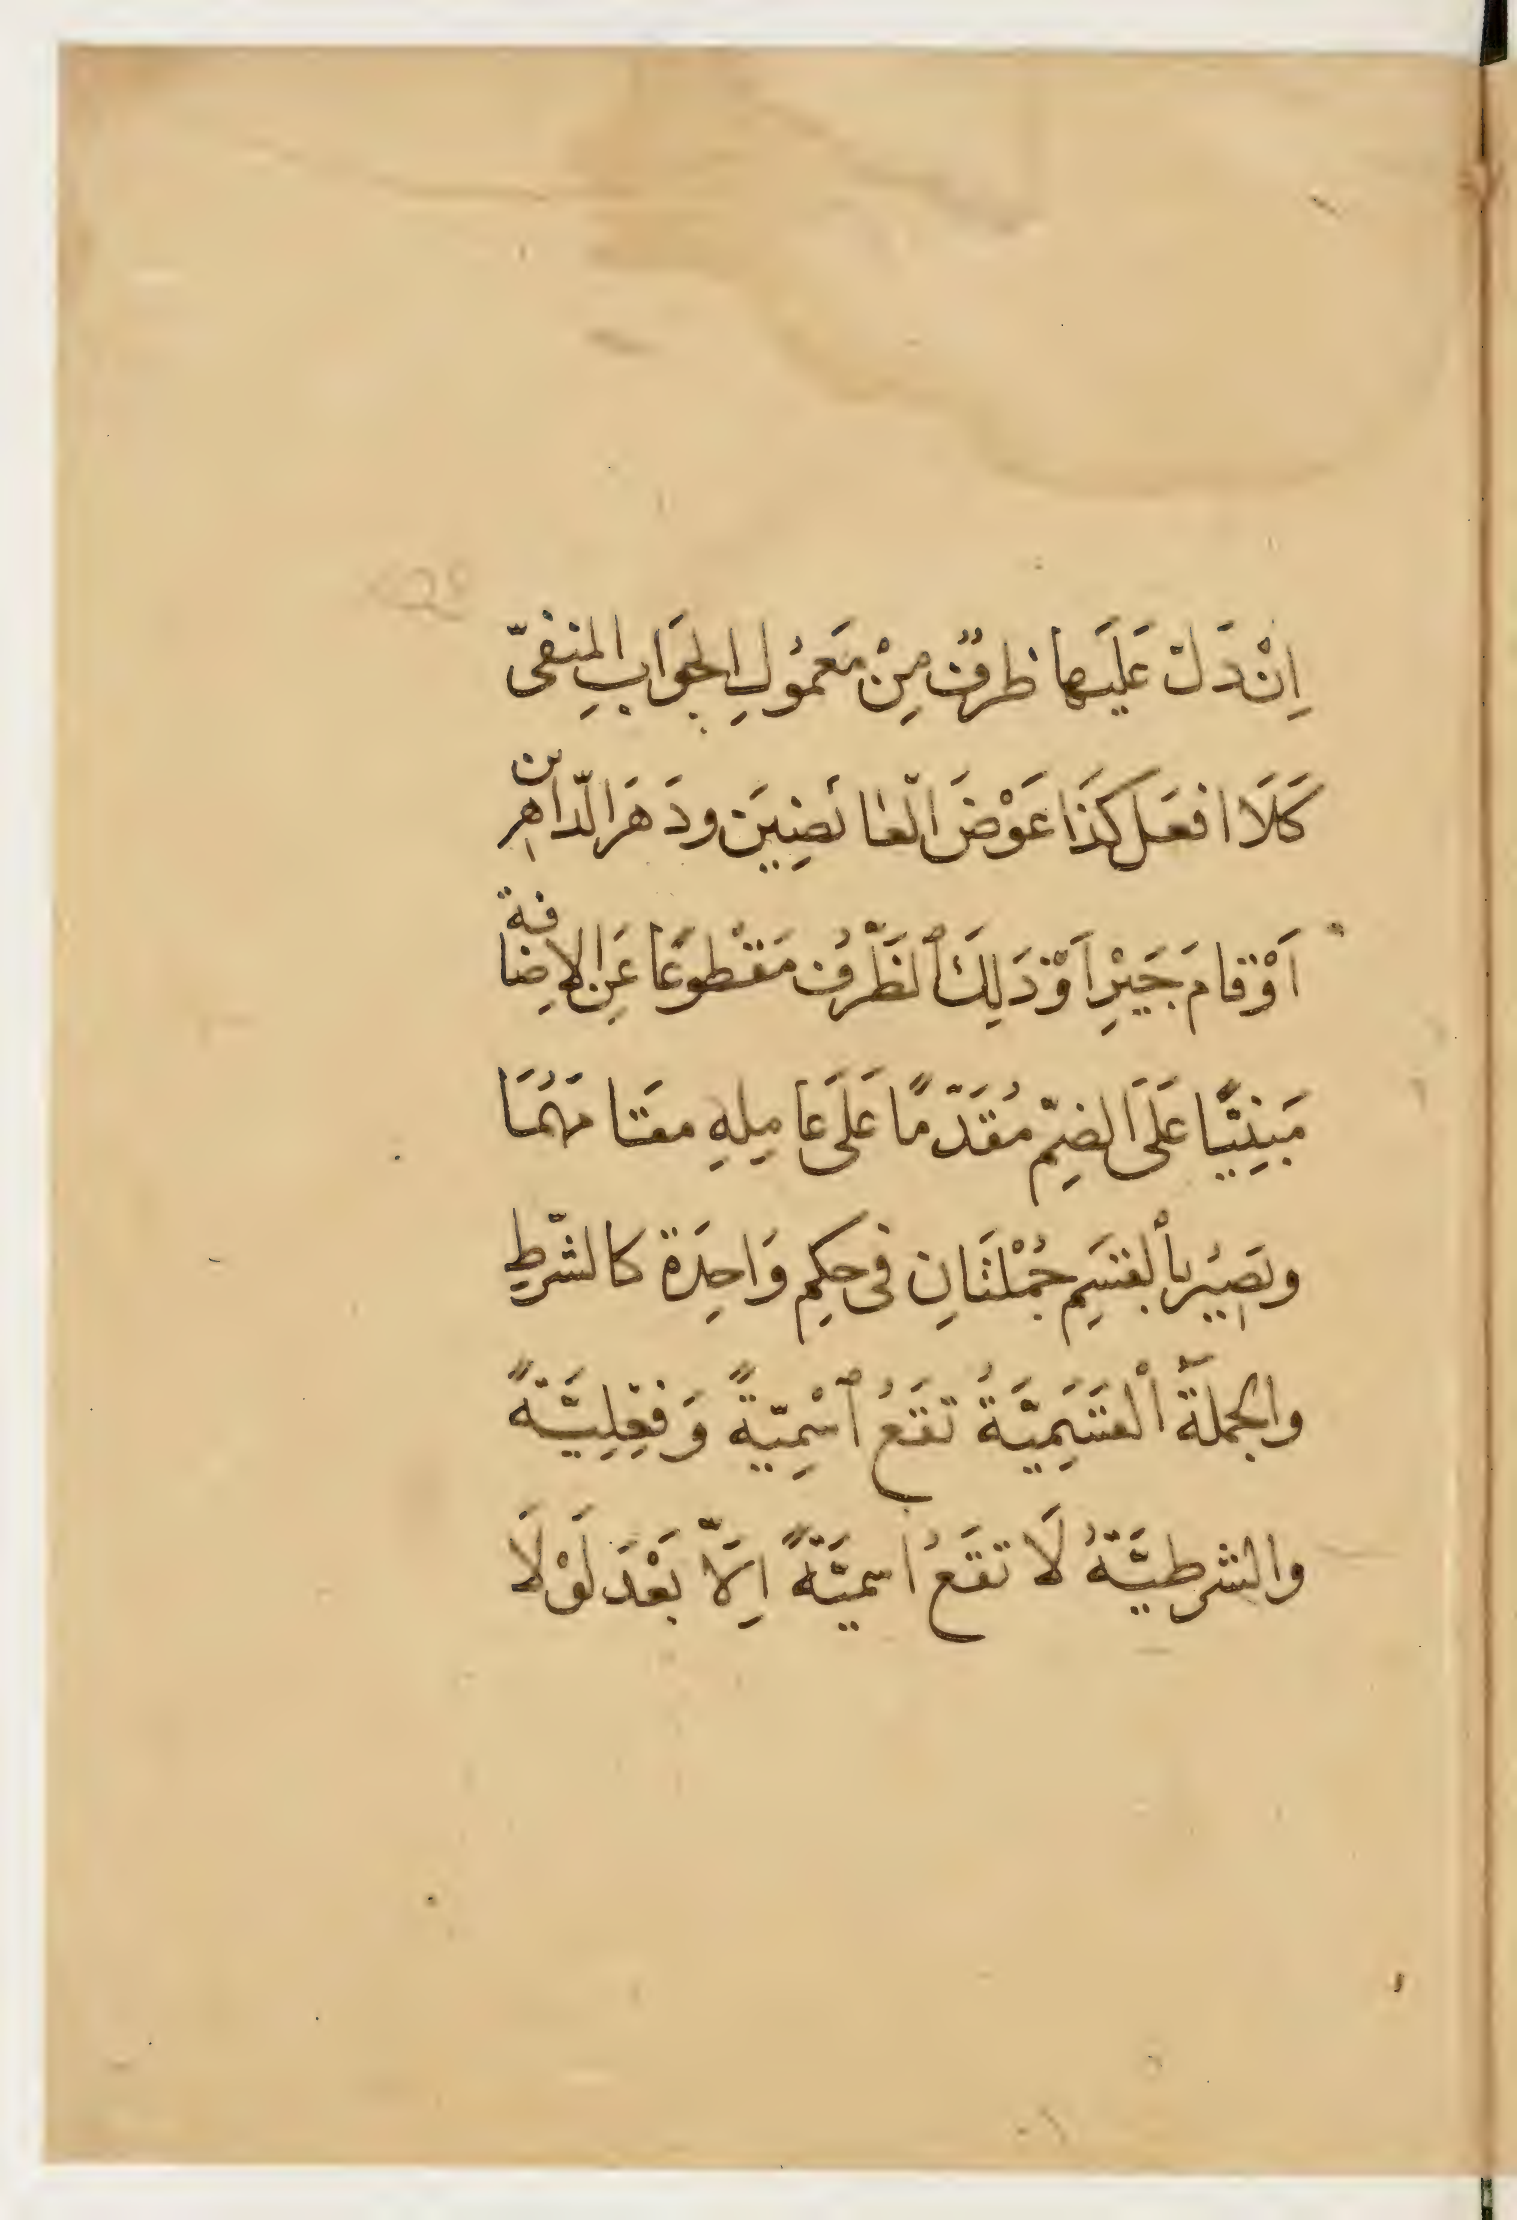 اِنْ دَلّ عَلَيها ظرفٌ مِنْ مَعمُولِ الجوَابِ المنفىّ
كَلَا افعَل كذَا عَوْضَ العَائضِينَ ودَهَر الدّاهِرين
اَوْ قامَ جَيْرِ اَوْ ذَلِكَ ٱلظَّرفُ مَقْطوعًا عَنِ الاِضافة
مَبنِيًّا عَلَى الضمِّ مُقَدّمًا عَلَى عَامِلهِ مقَامَهُمَا
وتصِيُر بالقسَمِ جُمْلَتَانِ فى حكمِ وَاحِدَة كالشّرطِ
والجملَةُ القَسَمِيَّةُ تقَعُ ٱسْمِيّةً وَفعْلِيَّةً
والشرطيَّةُ لَا تقَعُ اسميَّةً اِلَّا بَعْدَ لَوْلَا